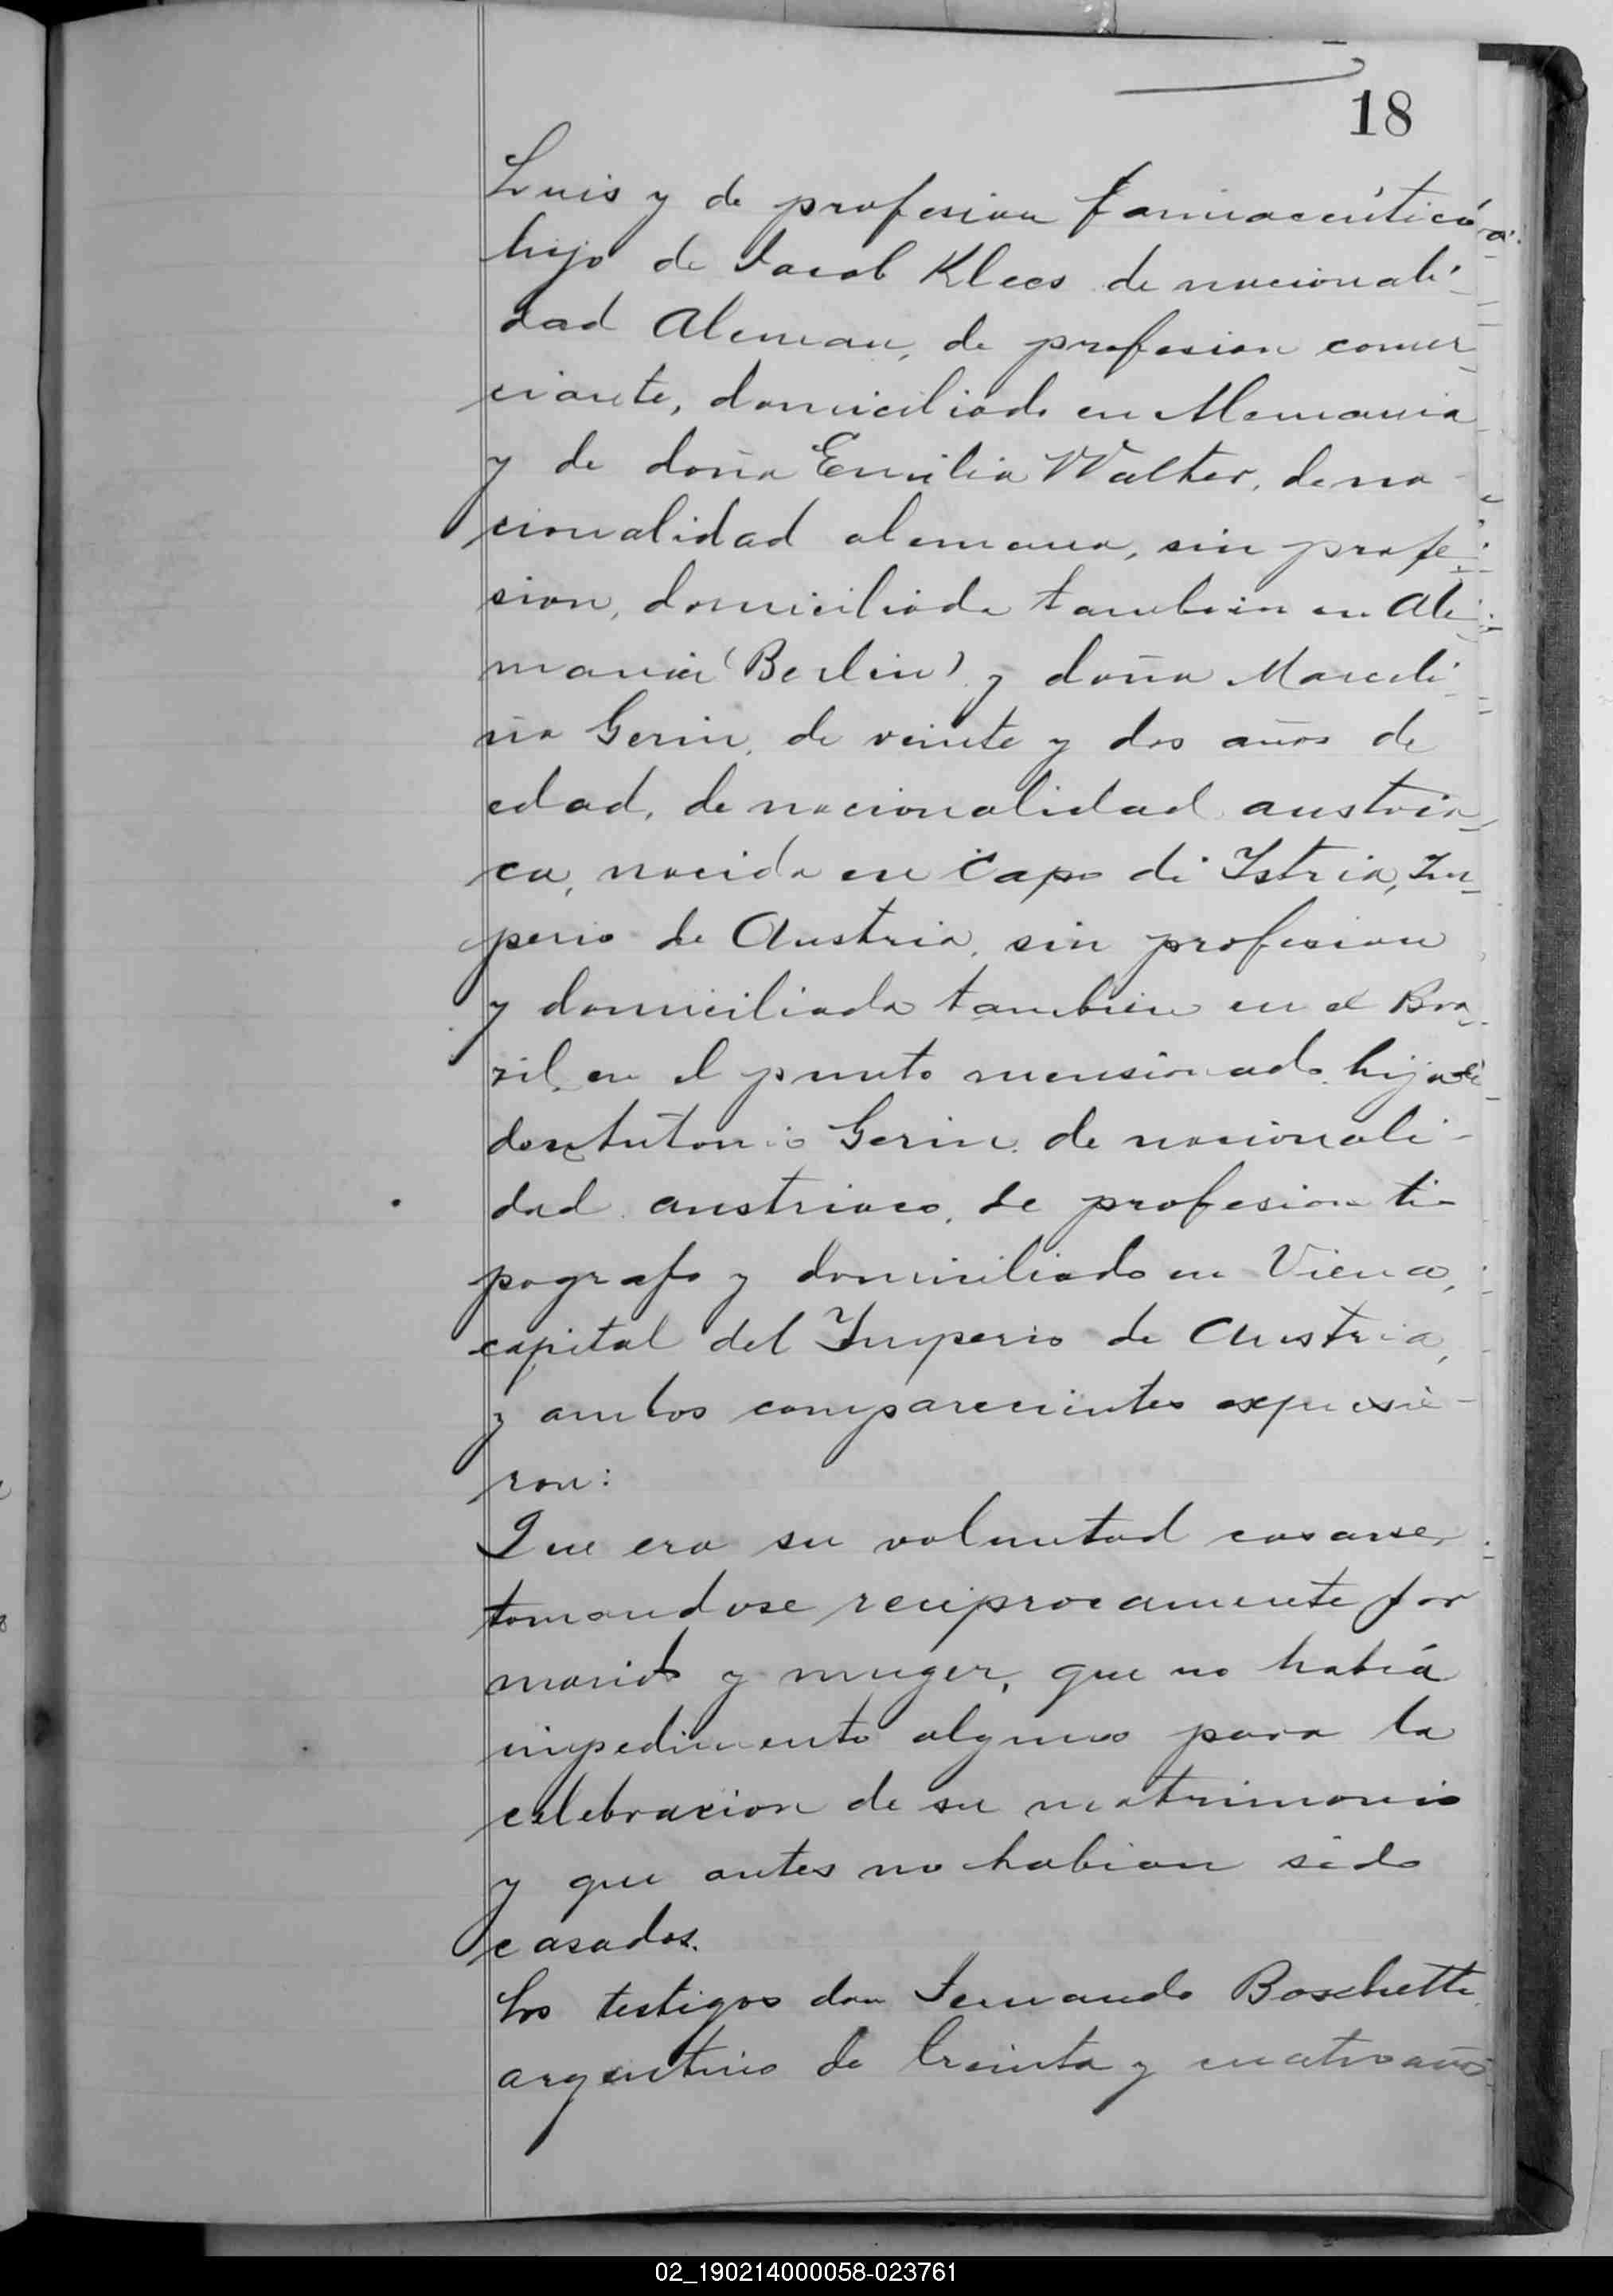 18
Luis y de profesion farmaceútico
hijo de Jacob Klees de nacionali-
dad Aleman, de profesion comer-
ciante, domiciliado en Alemania
y de doña Emilia Walter, de na
cionalidad alemana, sin profe-
sion, domiciliada tambien en Ale-
mania (Berlin) y doña Marceli-
na Gerin, de veinte y dos años de
edad, de nacionalidad austria-
ca, nacida en Capo di Istria, Im-
perio de Austria, sin profesion
y domiciliada tambien en el Bra-
zil, en el punto mensionado, hija de
don Antonio Gerin, de nacionali-
dad austriaco, de profesion ti-
pografo y domiciliado en Viena,
capital del Imperio de Austria,
y ambos comparecientes expusie-
ron:
Que era su voluntad casarse,
tomandose reciprocamente por
marido y muger, que no habiá
impedimento alguno para la
celebracion de su matrimonio
y que antes no habian sido
casados.
Los testigos don Fernando Boschetti
argentino de treinta y cuatro años
02_190214000058-023761